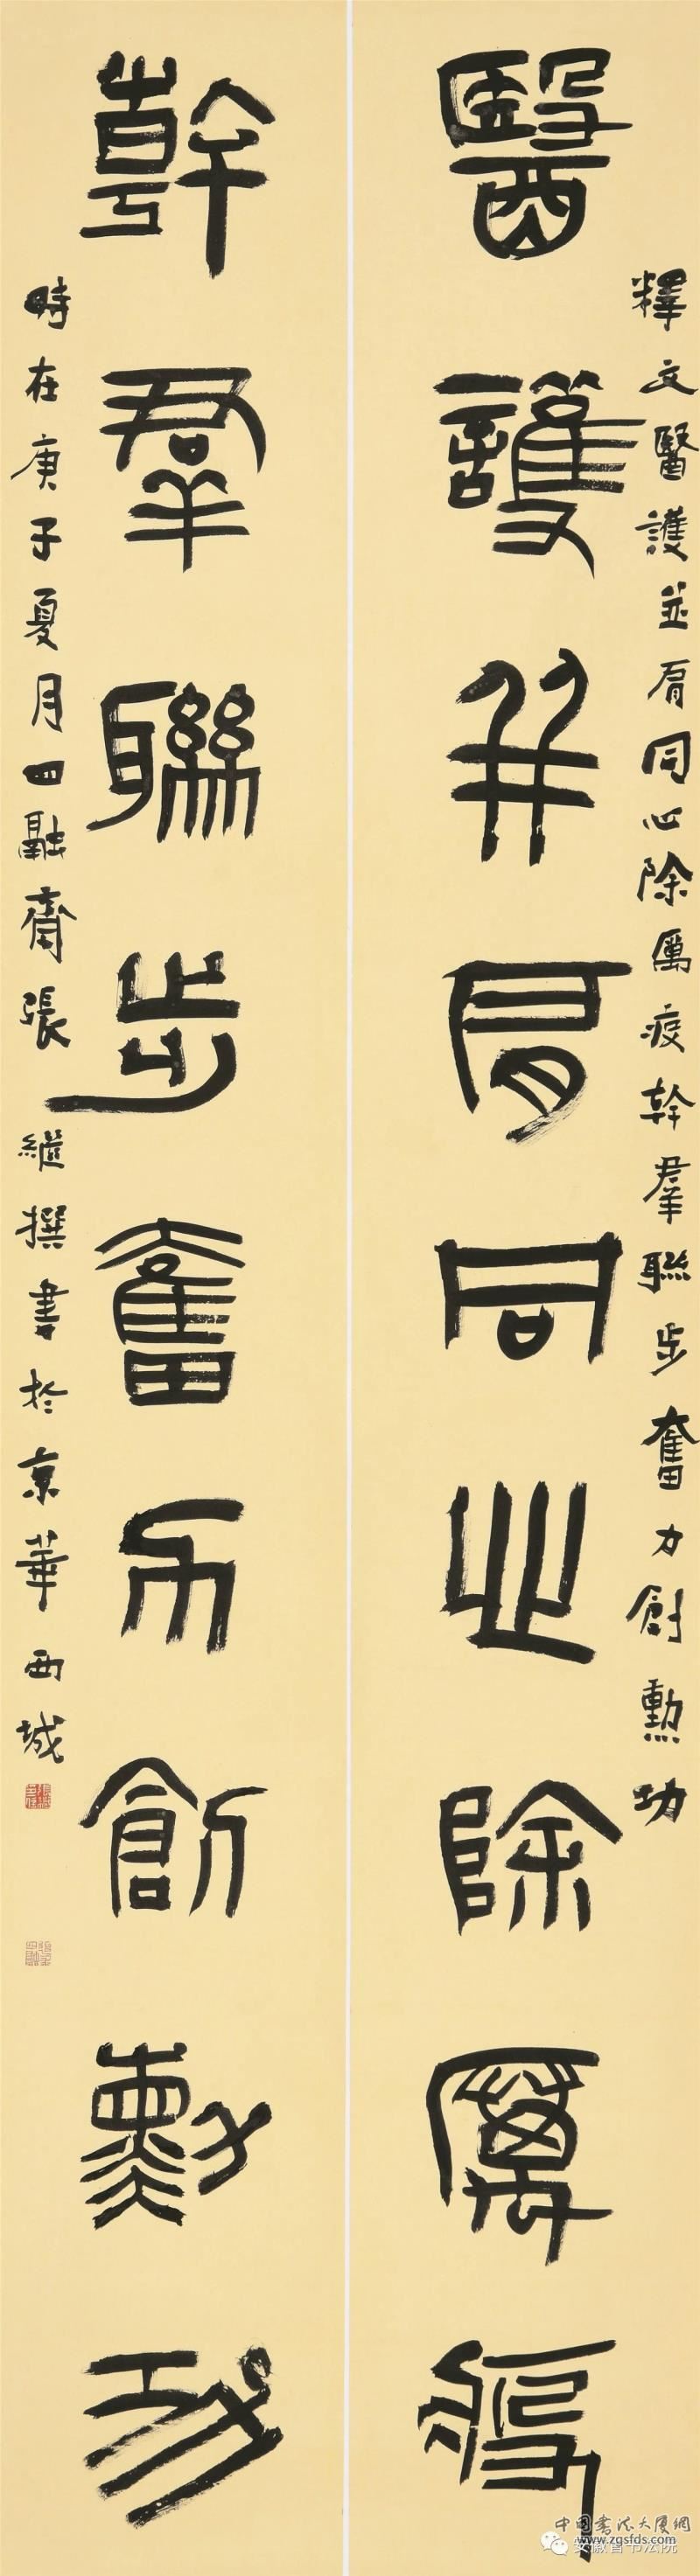 釋文醫護並肩同心除厲疫幹羣聯步奮力創勳功
醫護并肩同心除厲疫
幹羣聯步奮力創勳功
時在庚子夏月四融齋張繼撰書於京華西城
中国书法大厦網
www.zgsfds.com
安徽省书法院